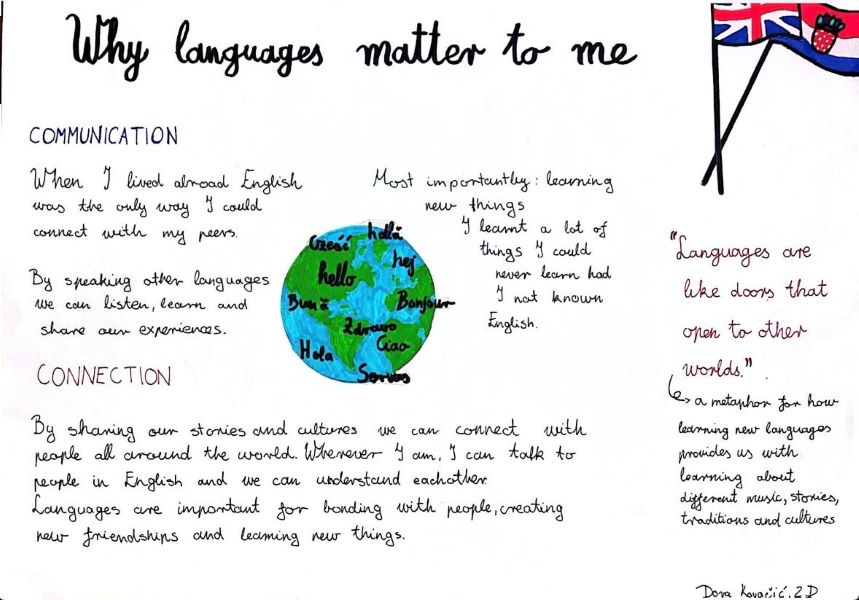 Why languages matter to me
COMMUNICATION
When I lived abroad English
was the only way I could
connect with my peers.
By speaking other languages
we can listen, learn and
share our experiences.
Most importantly: learning
new things
I learnt a lot of
things I could
never learn had
I not known
English.
Cześć
hallå
hello
hej
Bună
Bonjour
Zdravo
Ciao
Hola
Servus
CONNECTION
By sharing our stories and cultures we can connect with
people all around the world. Whenever I am, I can talk to
people in English and we can understand eachother.
Languages are important for bonding with people, creating
new friendships and learning new things.
"Languages are
like doors that
open to other
worlds."
a metaphor for how
learning new languages
provides us with
learning about
different music, stories,
traditions and cultures
Dora Kovačić, 2.D